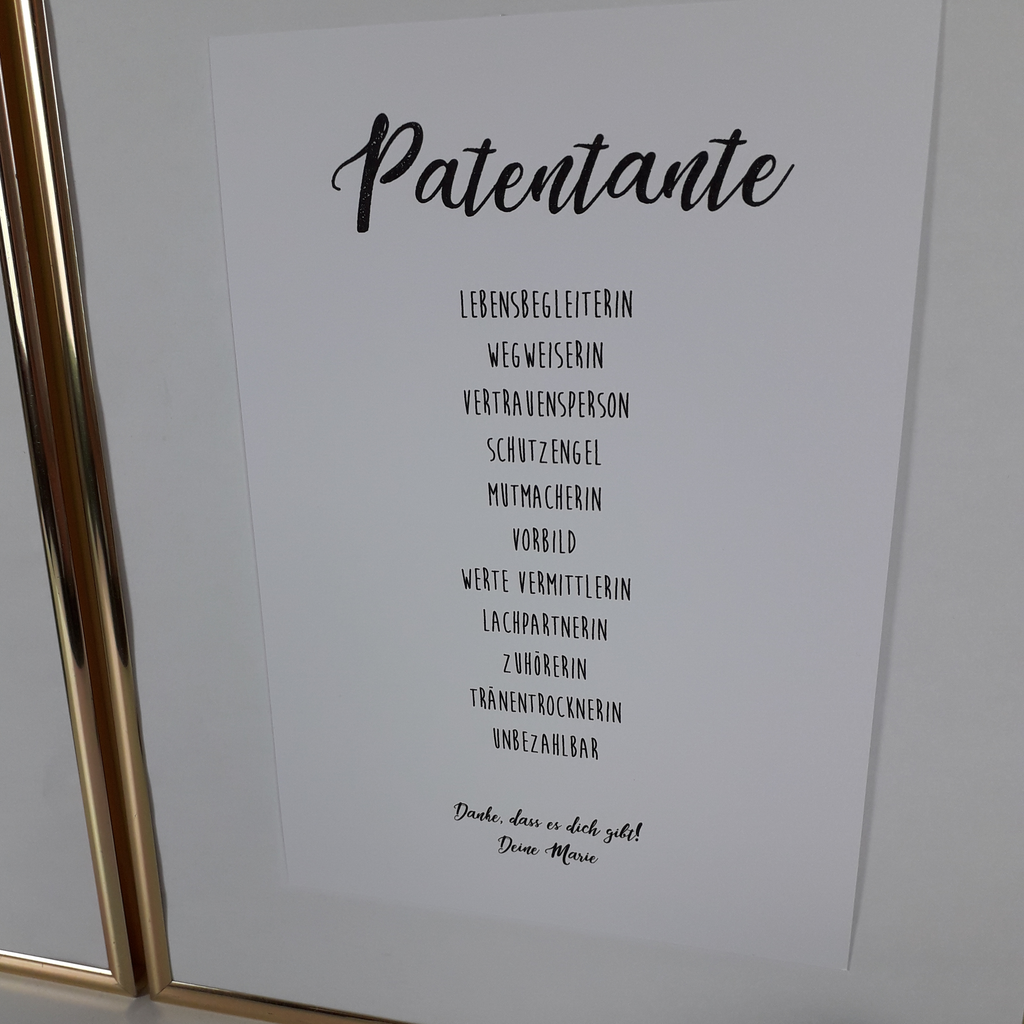 Patentante
LEBENSBEGLEITERIN
WEGWEISERIN
VERTRAUENSPERSON
SCHUTZENGEL
MUTMACHERIN
VORBILD
WERTE VERMITTLERIN
LACHPARTNERIN
ZUHÖRERIN
TRÄNENTROCKNERIN
UNBEZAHLBAR
Danke, dass es dich gibt!
Deine Marie